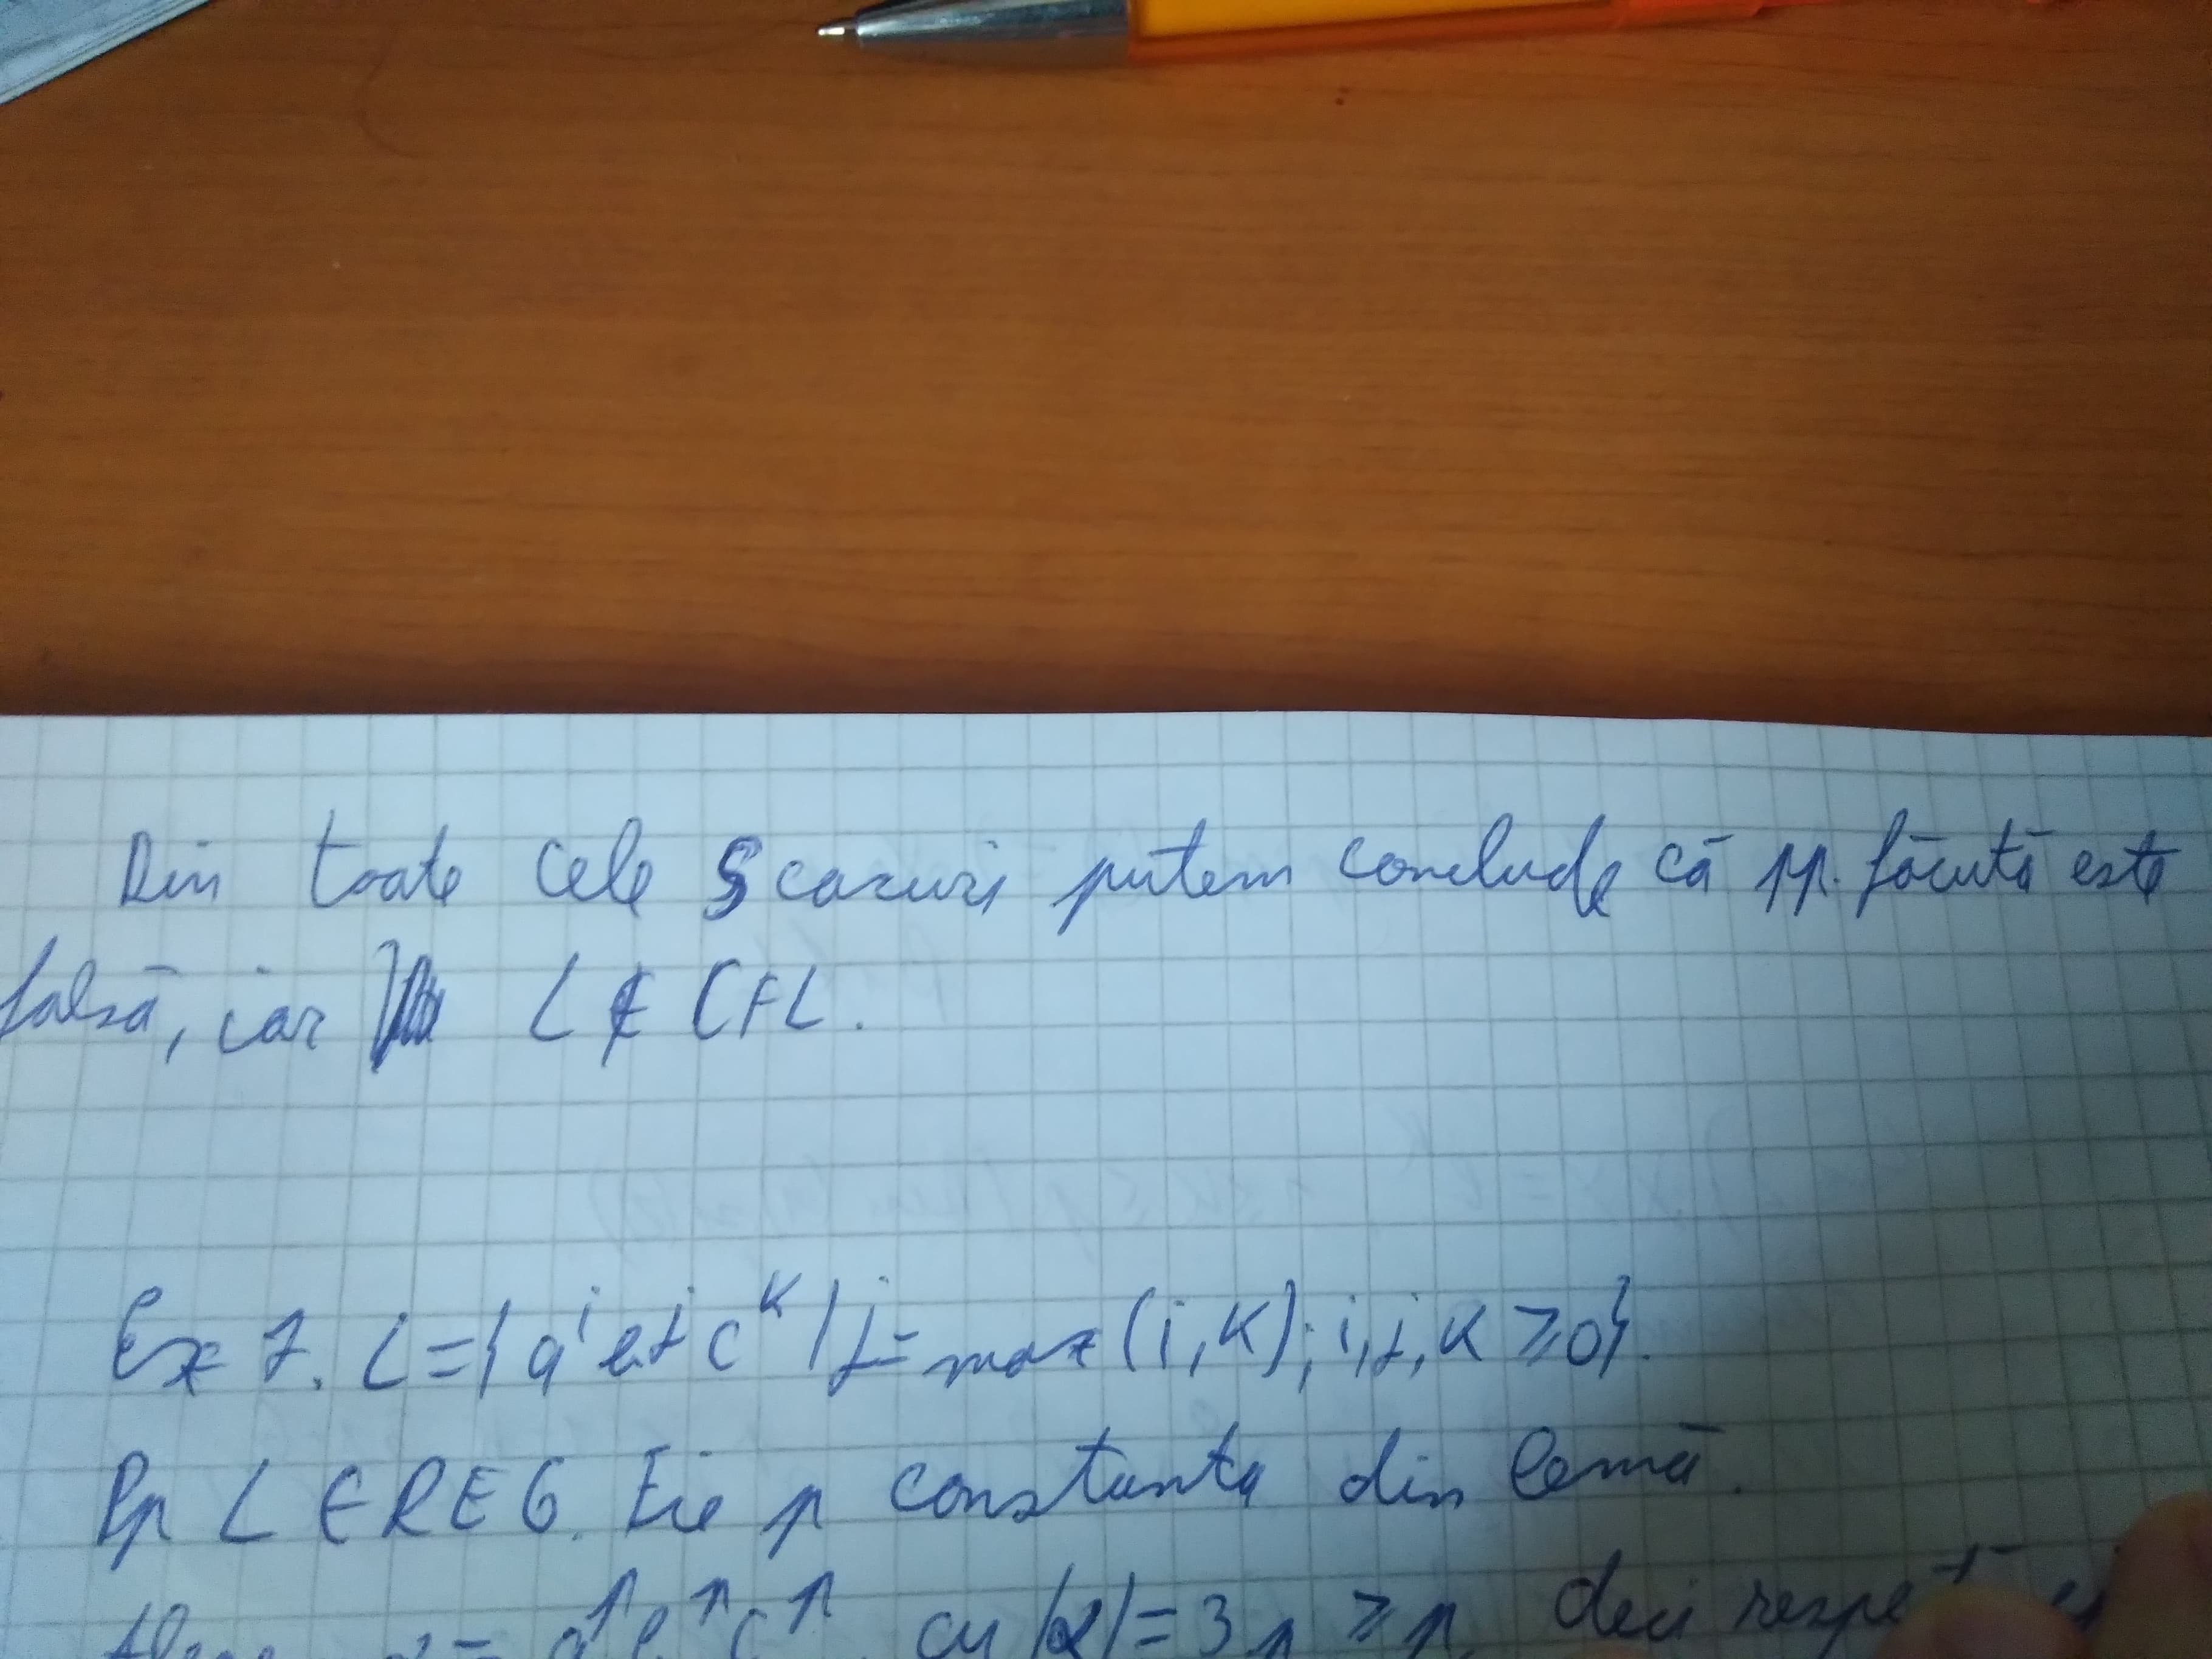 Din toate cele 5 cazuri putem conclude că pp. făcută este
falsă, iar L ∉ CFL.
Ex 7. L={a^i b^j c^k | j=max(i,k); i,j,k ≥0}.
Pp L ∈ REG. Fie p constanta din lemă.
Aleg α = a^p b^p c^p, cu |α|=3p ≥p, deci